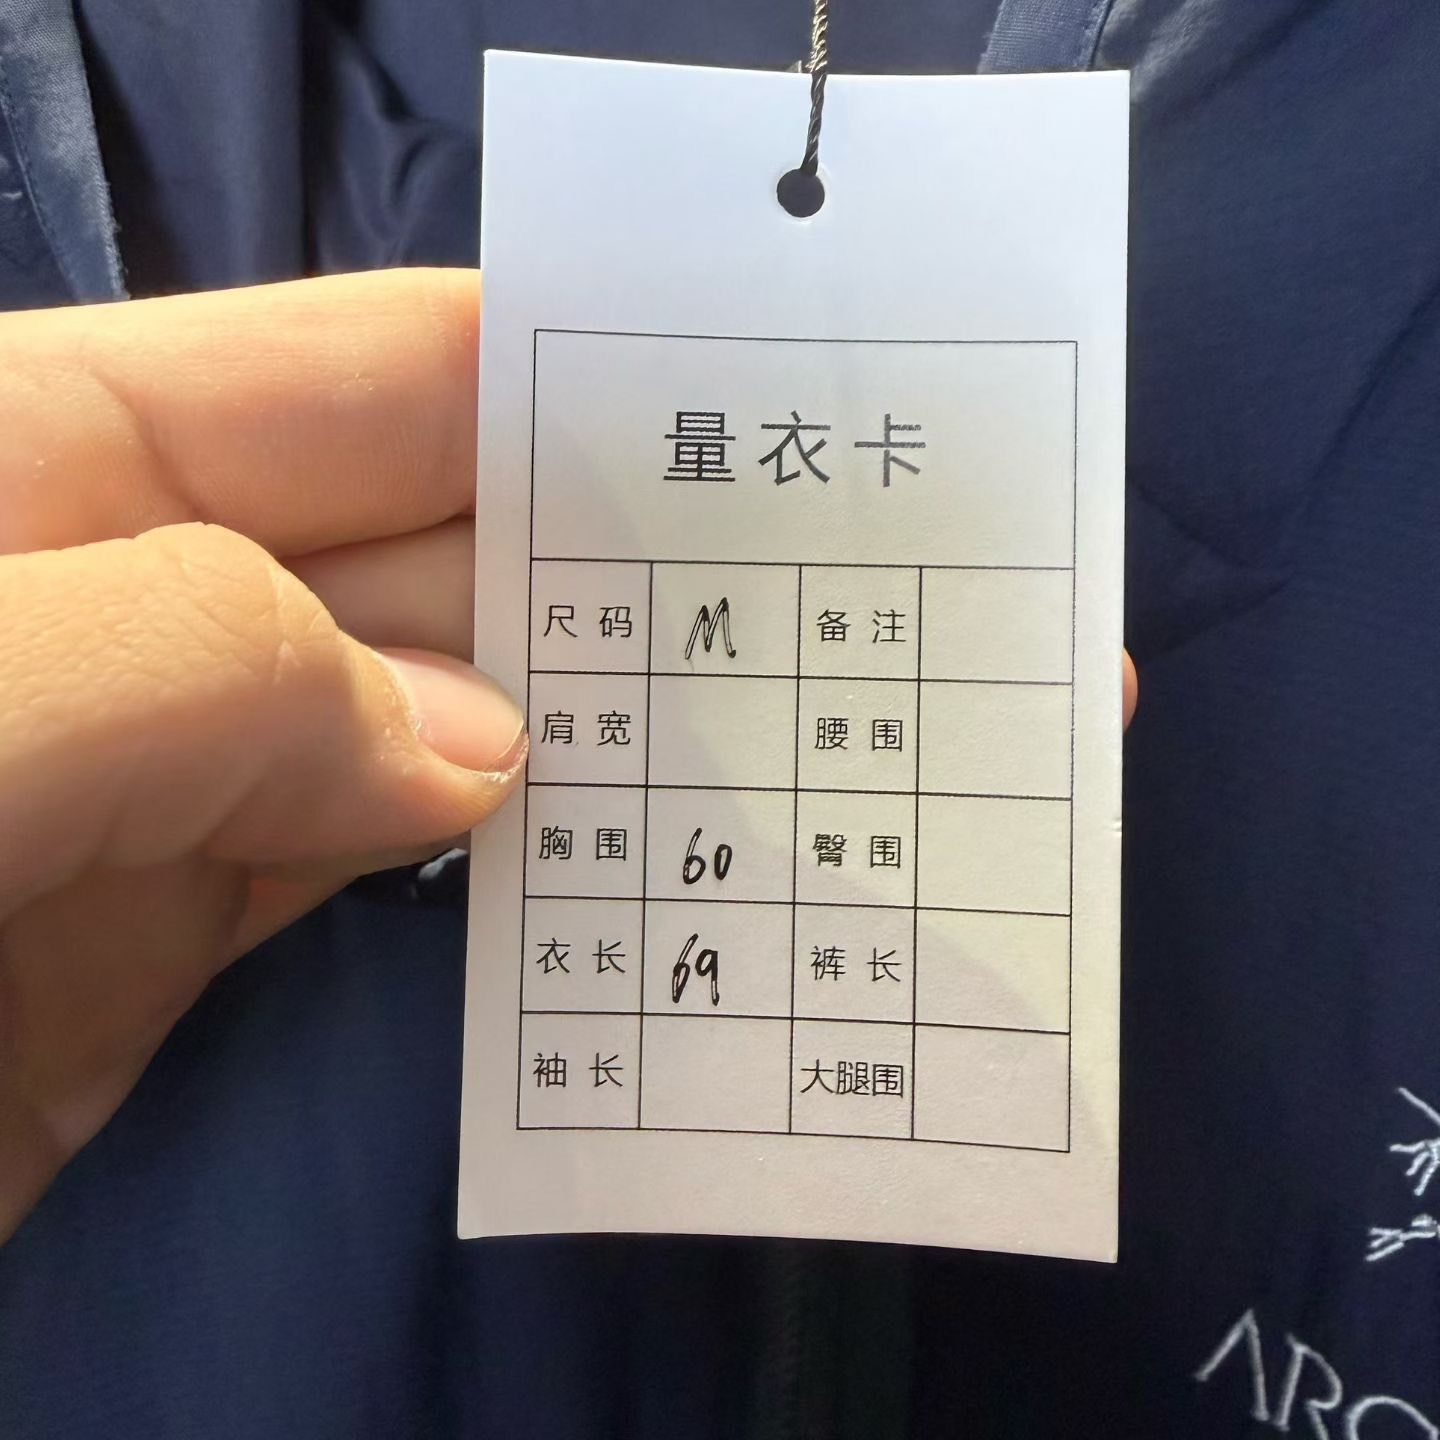 量衣卡
尺码 M 备注
肩宽 腰围
胸围 60 臀围
衣长 69 裤长
袖长 大腿围
ARC